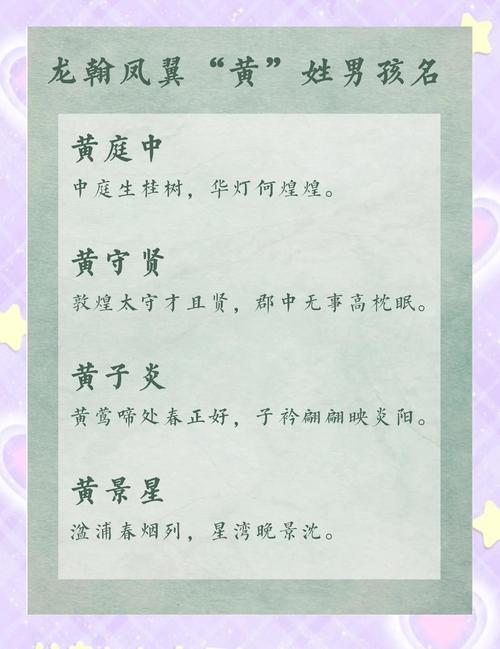 龙翰凤翼“黄”姓男孩名
黄庭中
中庭生桂树，华灯何煌煌。
黄守贤
敦煌太守才且贤，郡中无事高枕眠。
黄子炎
黄莺啼处春正好，子衿翩翩映炎阳。
黄景星
湓浦春烟列，星湾晚景沈。